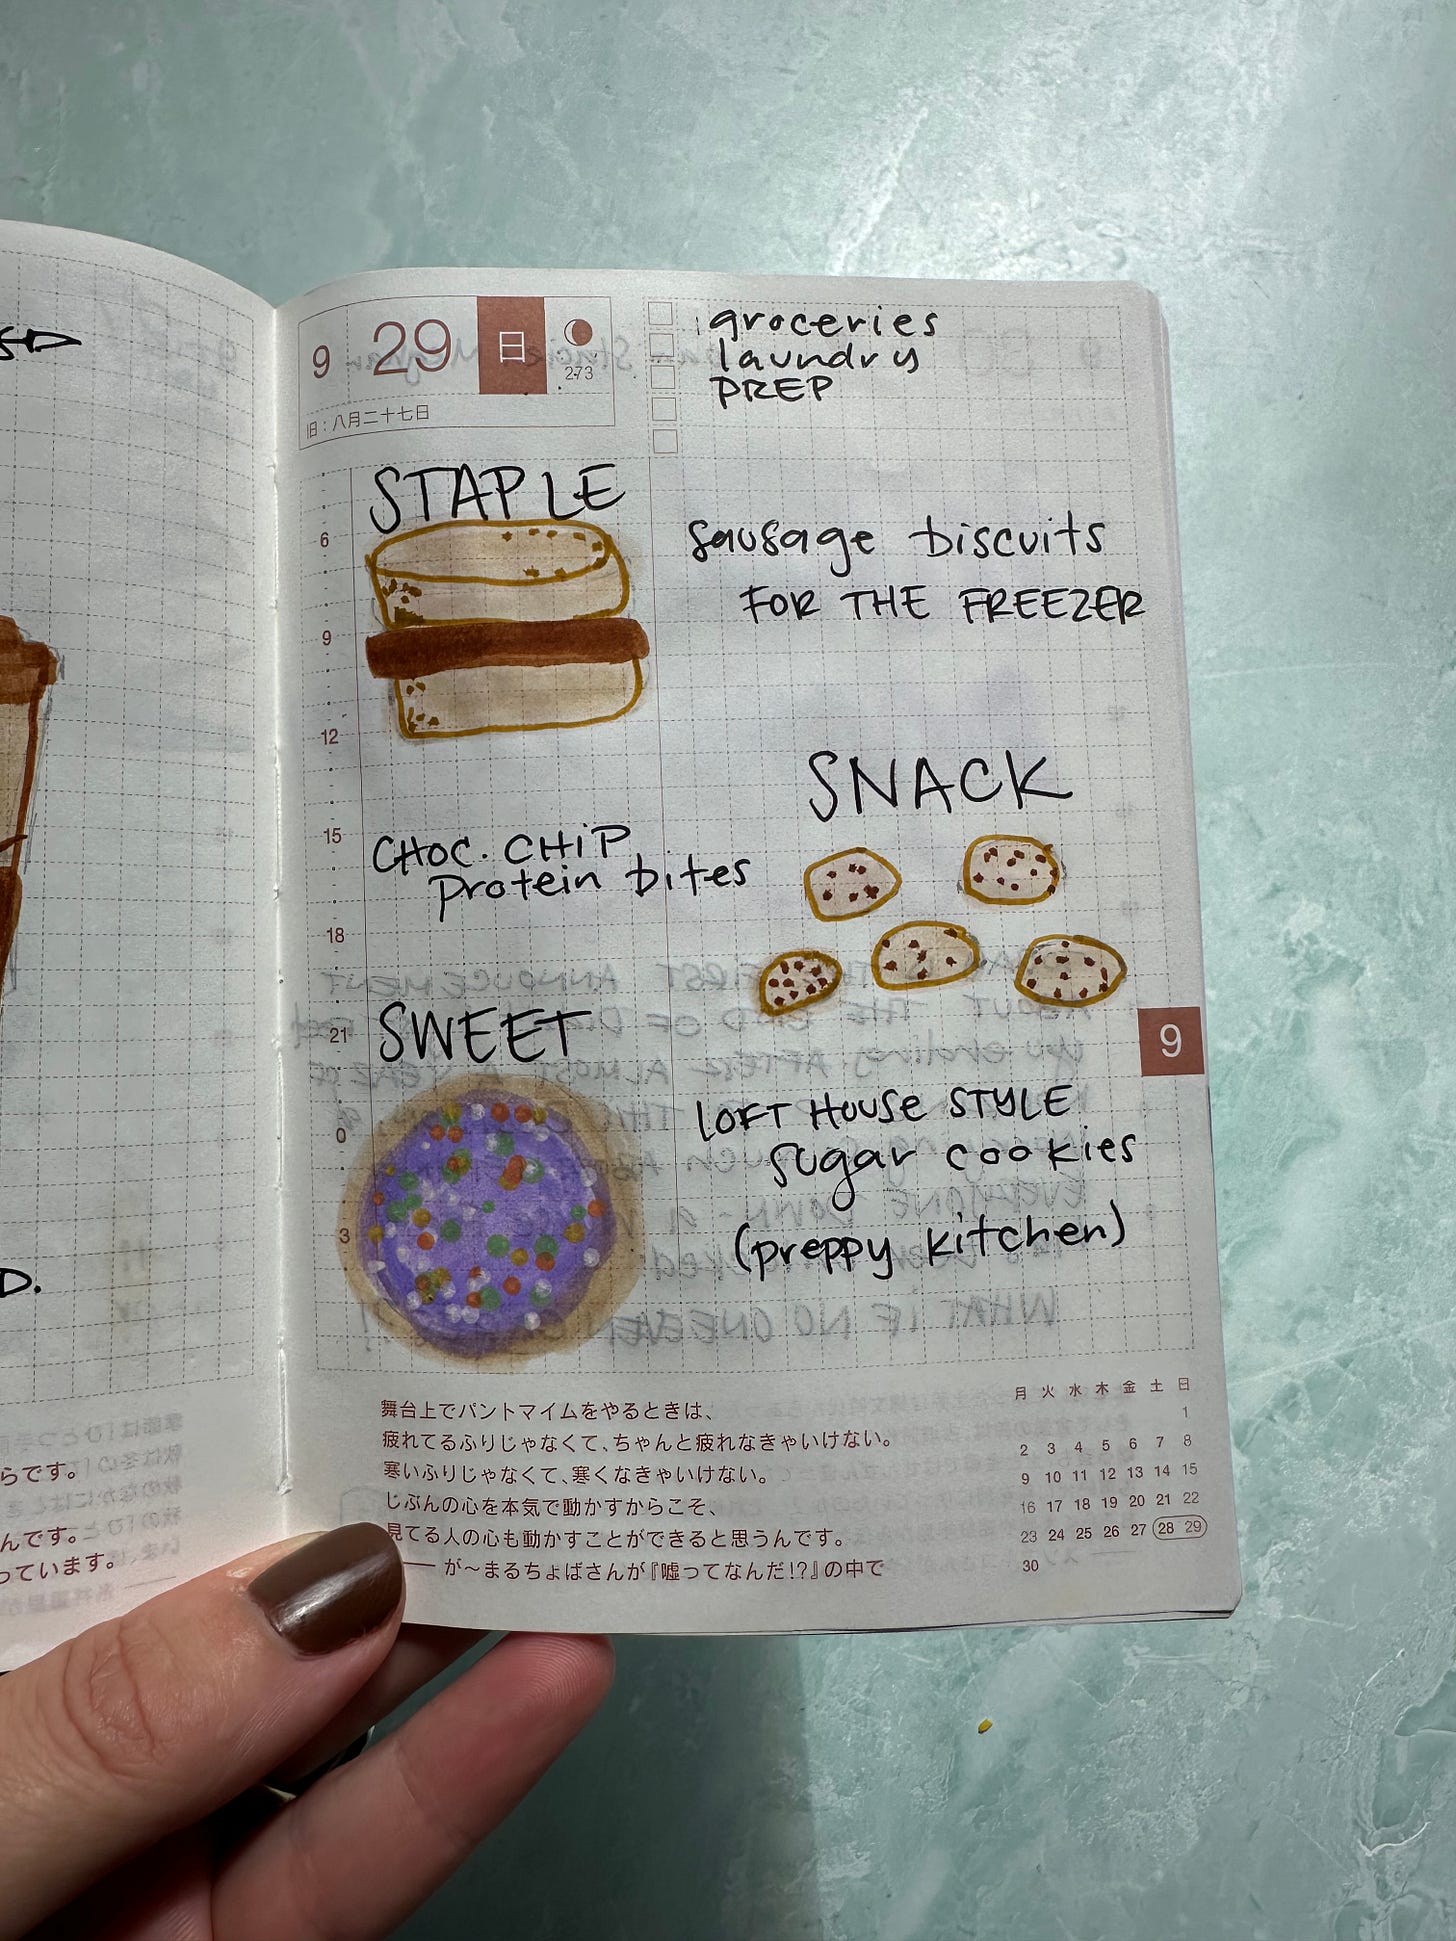 9 29 日
273
旧：八月二十七日
groceries
laundry
PREP
STAPLE
6
sausage biscuits
FOR THE FREEZER
9
12
SNACK
15
CHOC. CHIP
protein bites
18
SWEET
21
9
LOFT HOUSE STYLE
sugar cookies
0
(preppy kitchen)
3
舞台上でパントマイムをやるときは、
疲れてるふりじゃなくて、ちゃんと疲れなきゃいけない。
寒いふりじゃなくて、寒くなきゃいけない。
じぶんの心を本気で動かすからこそ、
見てる人の心も動かすことができると思うんです。
が〜まるちょばさんが『嘘ってなんだ!?』の中で
月 火 水 木 金 土 日
1
2 3 4 5 6 7 8
9 10 11 12 13 14 15
16 17 18 19 20 21 22
23 24 25 26 27 28 29
30
D.
らです。
んです。
っています。